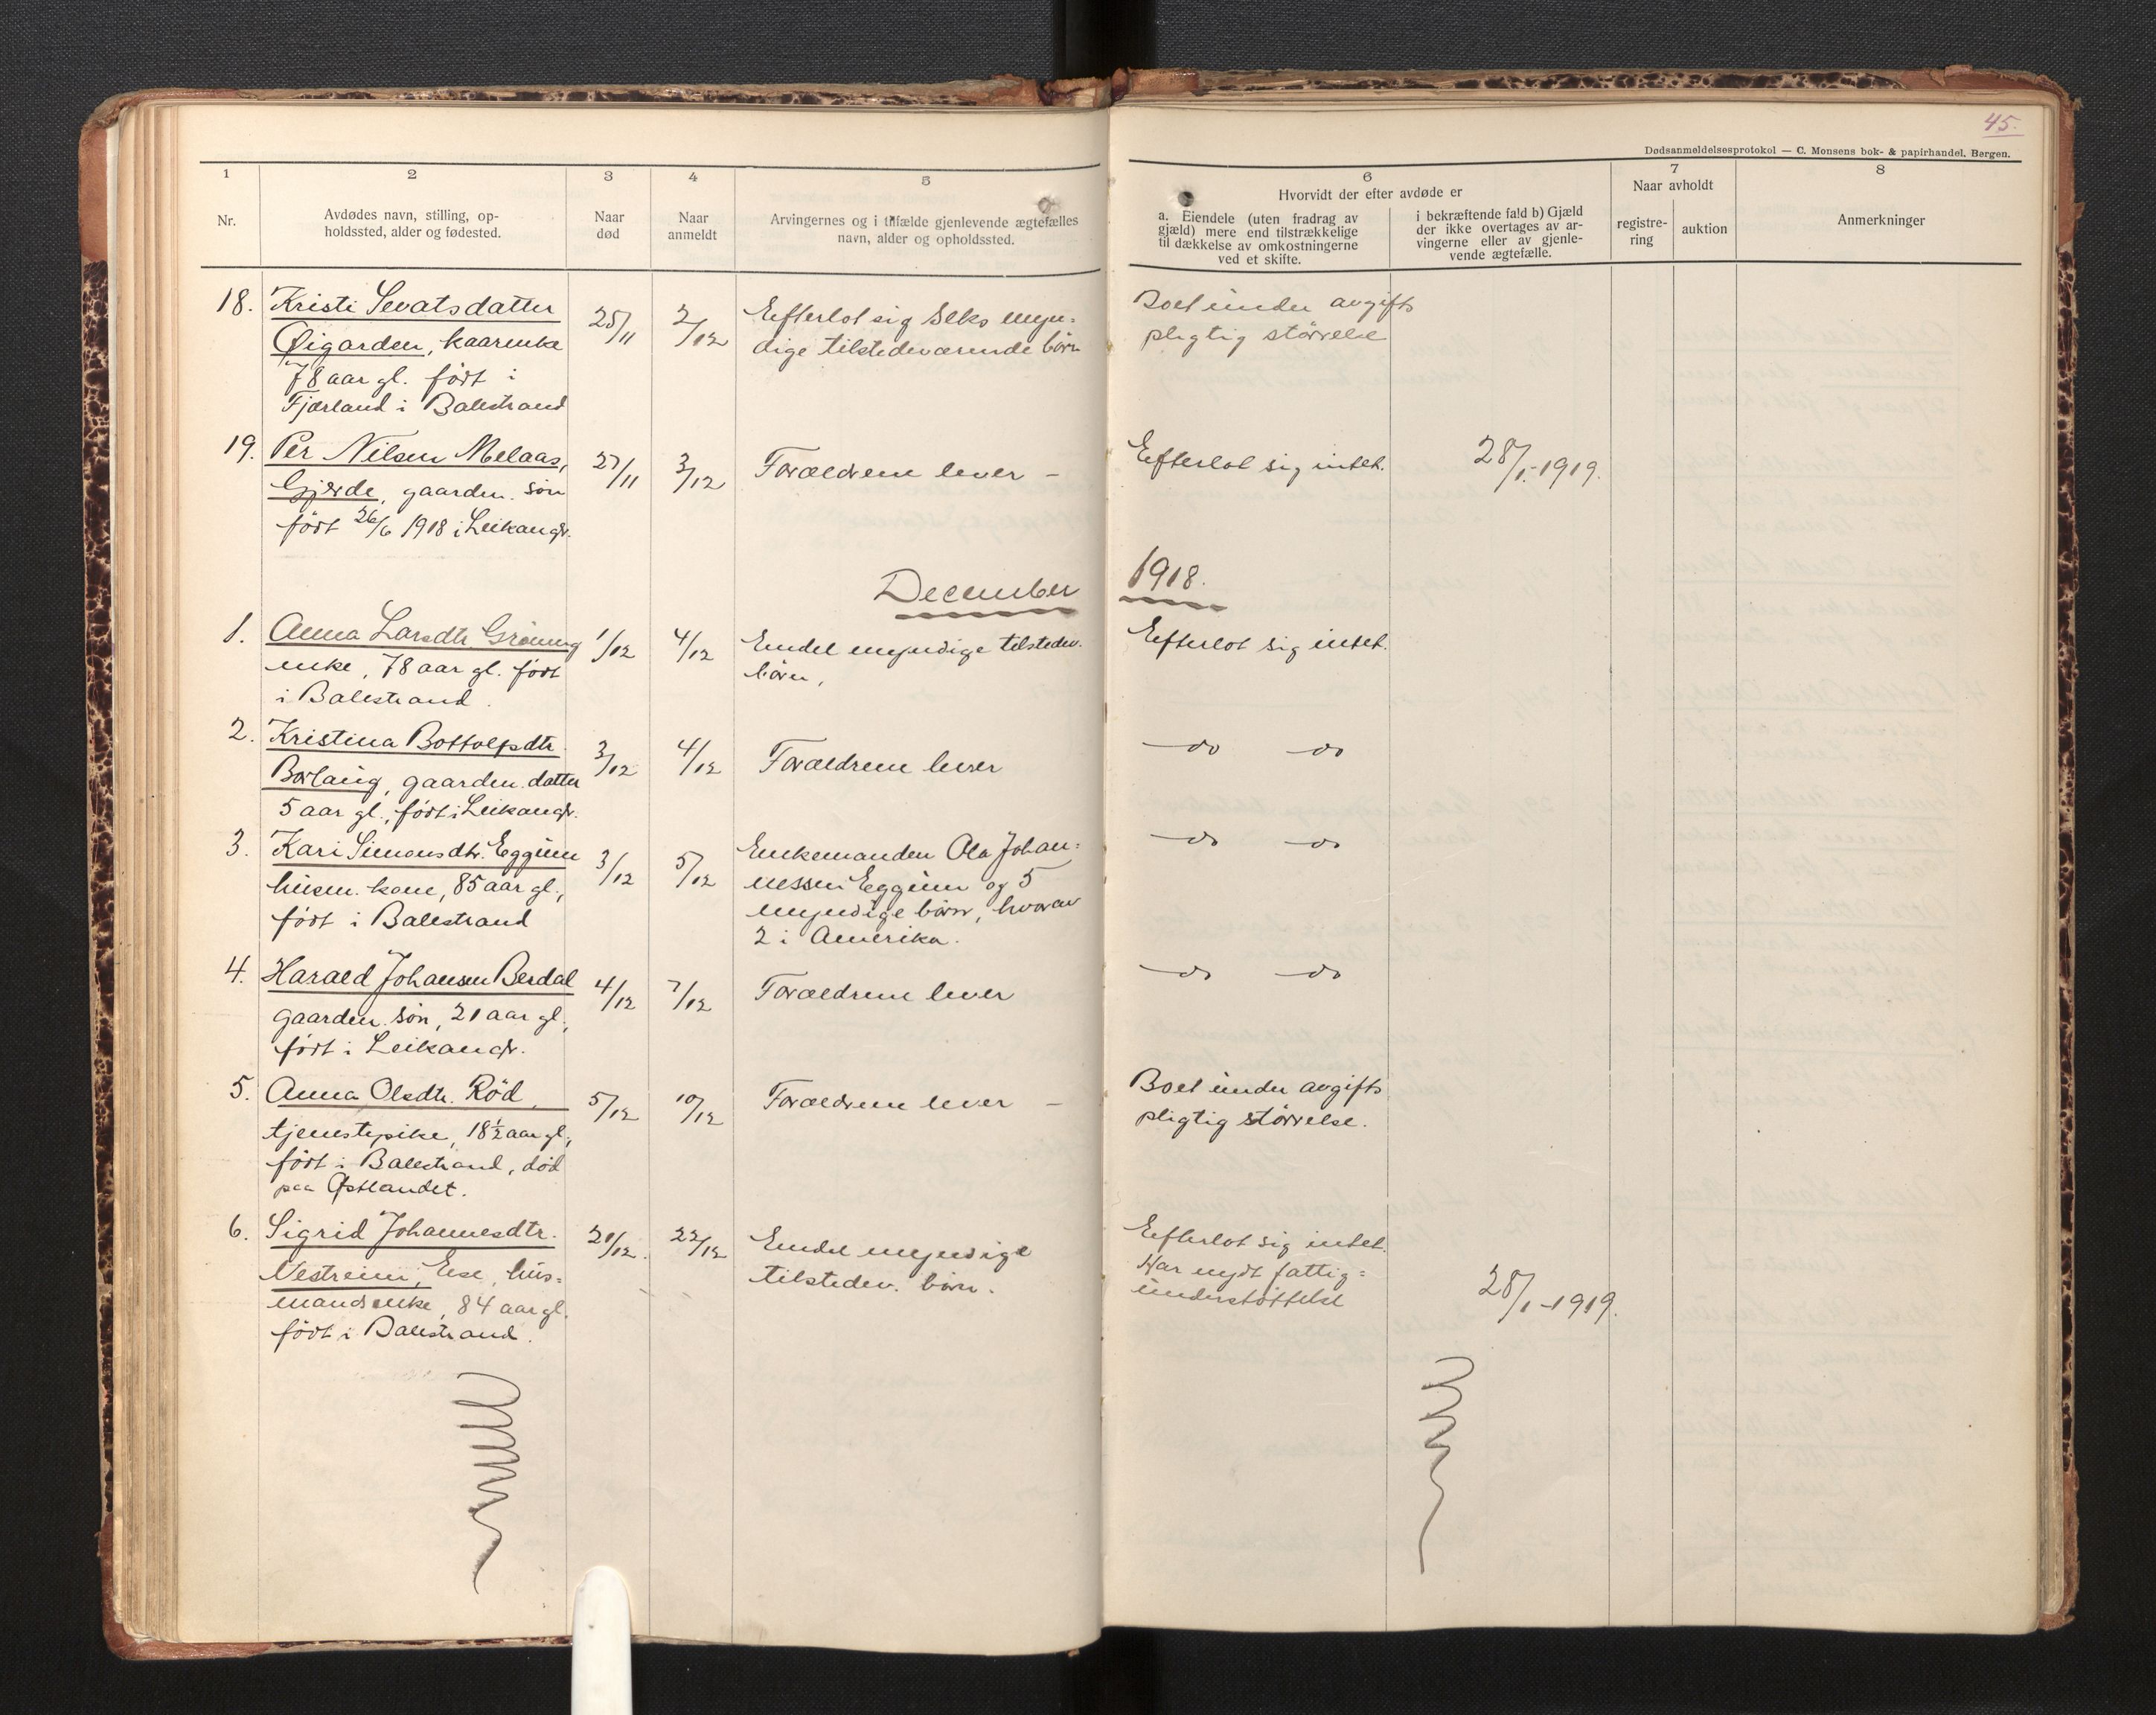 45.
Dødsanmeldelsesprotokol — C. Monsens bok- & papirhandel, Bergen.
1
Nr.
2
Avdødes navn, stilling, op-
holdssted, alder og fødested.
3
Naar
død
4
Naar
anmeldt
5
Arvingernes og i tilfælde gjenlevende ægtefælles
navn, alder og opholdssted.
6
Hvorvidt der efter avdøde er
a. Eiendele (uten fradrag av
gjæld) mere end tilstrækkelige
til dækkelse av omkostningerne
ved et skifte.
i bekræftende fald b) Gjæld
der ikke overtages av ar-
vingerne eller av gjenle-
vende ægtefælle.
7
Naar avholdt
registre-
ring
auktion
8
Anmerkninger
18.
Kristi Sevatsdatter
Øigarden, kaarenke
78 aar gl. født i
Fjærland i Balestrand
25/11
2/12
Efterlot sig seks myn-
dige tilstedeværende børn
Boet under avgifts
pligtig størrelse
19.
Per Nilsen Melaas,
Gjerde, gaardm. søn
født 26/6 1918 i Leikangr.
27/11
3/12
Forældrene lever —
Efterlot sig intet.
28/1-1919.
December 1918.
1.
Anna Larsdtr Grøning
enke, 78 aar gl. født
i Balestrand.
1/12
4/12
Endel myndige tilstedev.
børn,
Efterlot sig intet.
2.
Kristina Bottolfsdtr.
Borlaug, gaardm. datter
5 aar gl., født i Leikangr.
3/12
4/12
Forældrene lever
— do — do
3.
Kari Simonsdtr. Eggum
husm. kone, 85 aar gl.,
født i Balestrand
3/12
5/12
Enkemanden Ola Johan=
nessen Eggum og 5
myndige børn, hvorav
2 i Amerika.
— do — do
4.
Harald Johansen Berdal
gaardm. søn, 21 aar gl.,
født i Leikangr.
4/12
7/12
Forældrene lever
— do — do
5.
Anna Olsdtr. Rød,
tjenestepike, 18½ aar gl.,
født i Balestrand, død
paa Østlandet.
5/12
10/12
Forældrene lever —
Boet under avgifts
pligtig størrelse.
6.
Sigrid Johannesdtr.
Vestreim, Ese, hus=
mandsenke, 84 aar gl.
født i Balestrand.
21/12.
22/12
Endel myndige
tilstedev. børn.
Efterlot sig intet.
Har nydt fattig=
understøttelse
28/1-1919.